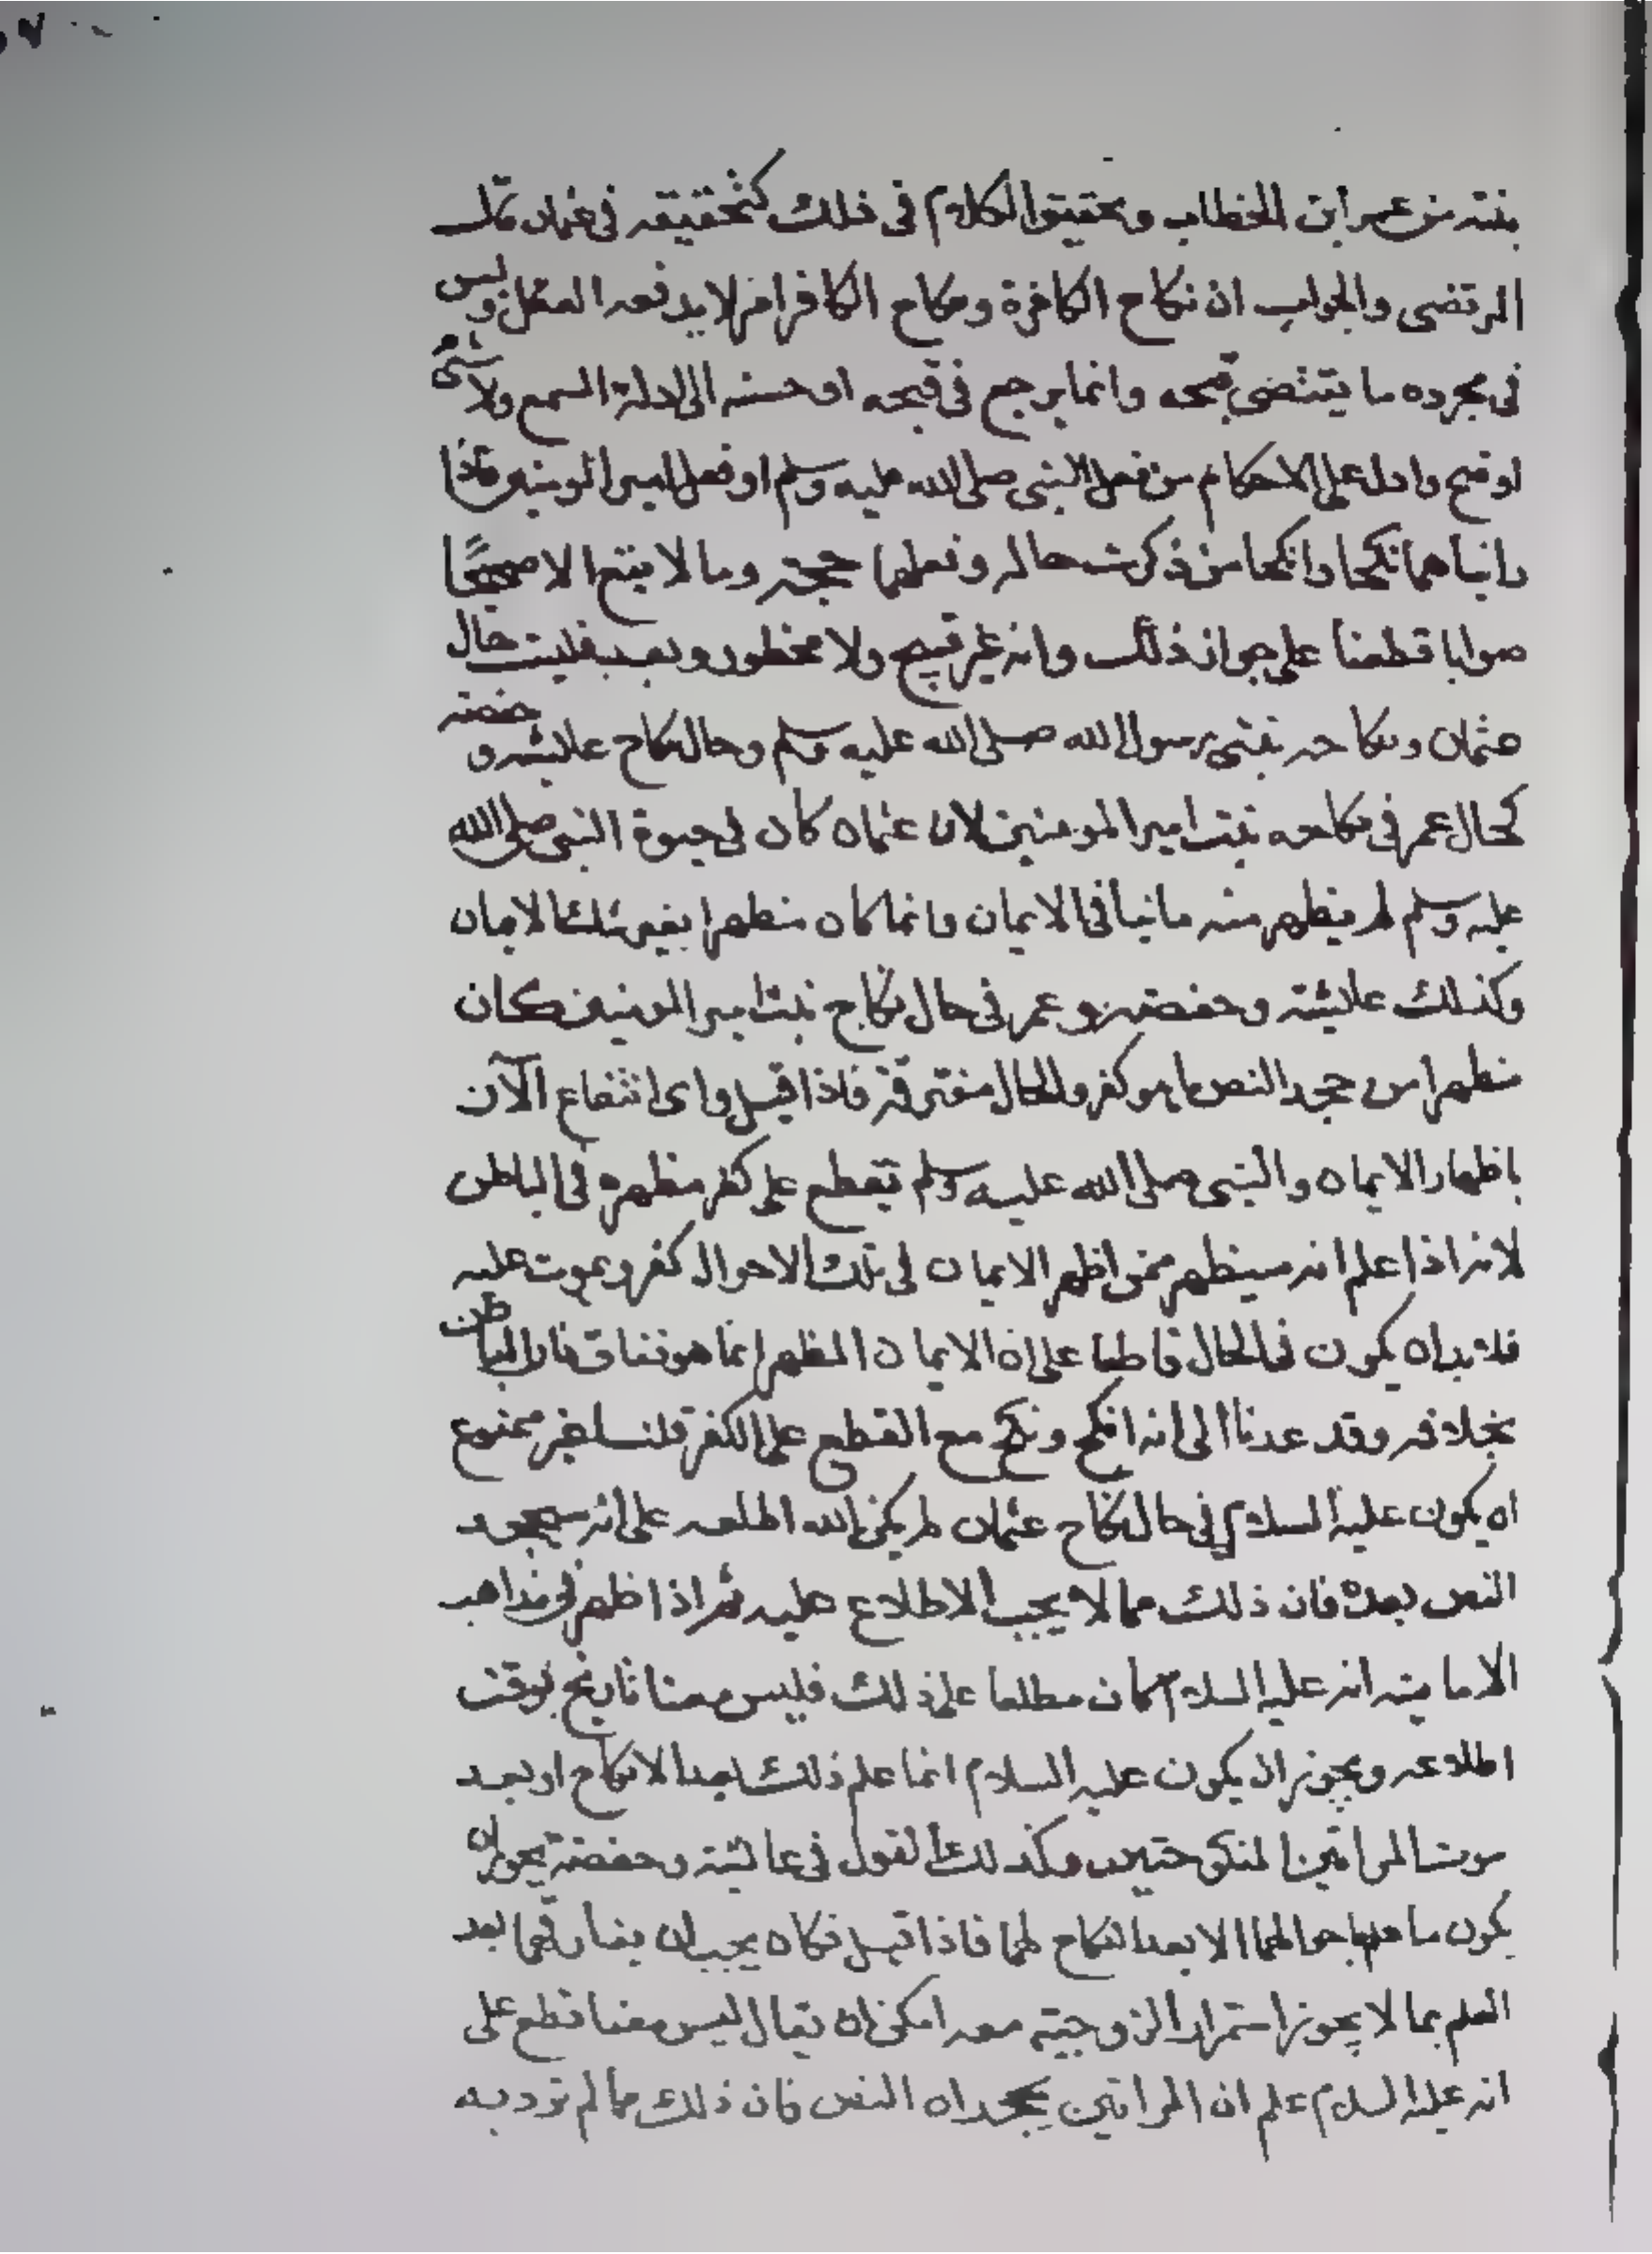 بنته من عمر ابن الخطاب وتحقيق الكلام في ذلك كتحقيقه في عثمان قال
المرتضى والجواب ان نكاح الكافرة ونكاح الكافر لا يدفعه العقل وليس
في مجرده ما يقتضي قبحه وانما يرجع في قبحه او حسنه الى ادلة السمع ولا شئ
اوضح وادل على الاحكام من فعل النبى صلى الله عليه وسلم او فعل امير المومنين فاذا
راينا هما نكحا وانكحا من ذكرت حاله وفعلهما حجة وما لا يقع الا صحيحًا
صوابا قطعنا على جواز ذلك وانه غير قبيح ولا محظور وبعد فليت حال
عثمان ونكاحه بنتى رسول الله صلى الله عليه وسلم وحال نكاح عايشه و حفصة
كحال عمر في نكاحه بنت امير المومنين لان عثمان كان في حيوة النبى صلى الله
عليه وسلم لم يظهر منه ما ينافى الايمان وانما كان مظهرا بغير شك الايمان
وكذلك عايشة وحفصة وعمر في حال نكاح بنت امير المومنين كان
مظهرا من جحد النص ما هو كفر والحال مفترقة فاذا قيل واى انتفاع الآن
باظهار الايمان والنبى صلى الله عليه وسلم يقطع على كفر مظهره في الباطن
لانه اذا علم انه سيظهر ممن اظهر الايمان في تلك الاحوال كفر ويموت عليه
فلا بد ان يكون في الحال قاطعا على ان الايمان المظهر انما هو نفاق فان الباطن
بخلافه وقد عدنا الى انه انكح ونكح مع القطع على الكفر قلنا غير ممنوع
ان يكون عليه السلام في حال نكاح عثمان لم يكن الله اطلعه على انه سيجحد
النص بعده فان ذلك مما لا يجب الاطلاع عليه ثم اذا ظهر في مذاهب
الامامية انه عليه السلام كان مطلعا على ذلك فليس معنا تاريخ بوقت
اطلاعه ويجوز ان يكون عليه السلام انما علم ذلك بعد الانكاح او بعد
موت المراتين المنكوحتين وكذلك القول في عايشة وحفصة يجوز ان
يكون ما علم باحوالهما الا بعد النكاح لهما فاذا قيل فكان يجب ان يفارقهما بعد
العلم بما لا يجوز استمرار الزوجية معه امكن ان يقال ليس معنا قطع على
انه عليه السلام علم ان المراتين يجحدان النص فان ذلك مما لم ترد به